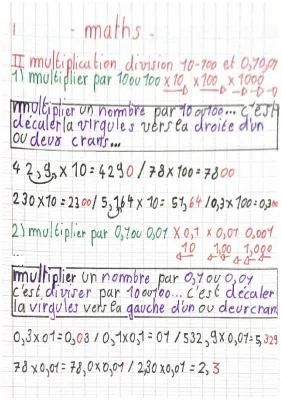 1 - maths -
II multiplication division 10-100 et 0,10,01
1) multiplier par 10 ou 100 x 10 x 100 x 1000
multiplier un nombre par 10 ou 100... c'est
décaler la virgules vers la droite d'un
ou deux crans...
42,9, x 10 = 4290 / 78 x 100 = 7800
230 x 10 = 2300 / 5,164 x 10 = 51,64 / 0,3 x 100 = 0,300
2) multiplier par 0,1 ou 0,01 x 0,1 x 0,01 0,001
10 1,00 1,000
multiplier un nombre par 0,1 ou 0,01
c'est diviser par 10 ou 100... c'est décaler
la virgules vers la gauche d'un ou deux crans
0,3 x 01 = 0,03 / 0,1 x 0,1 = 01 / 532,9 x 0,01 = 5,329
78 x 0,01 = 78,0 x 0,01 / 230 x 0,01 = 2,3